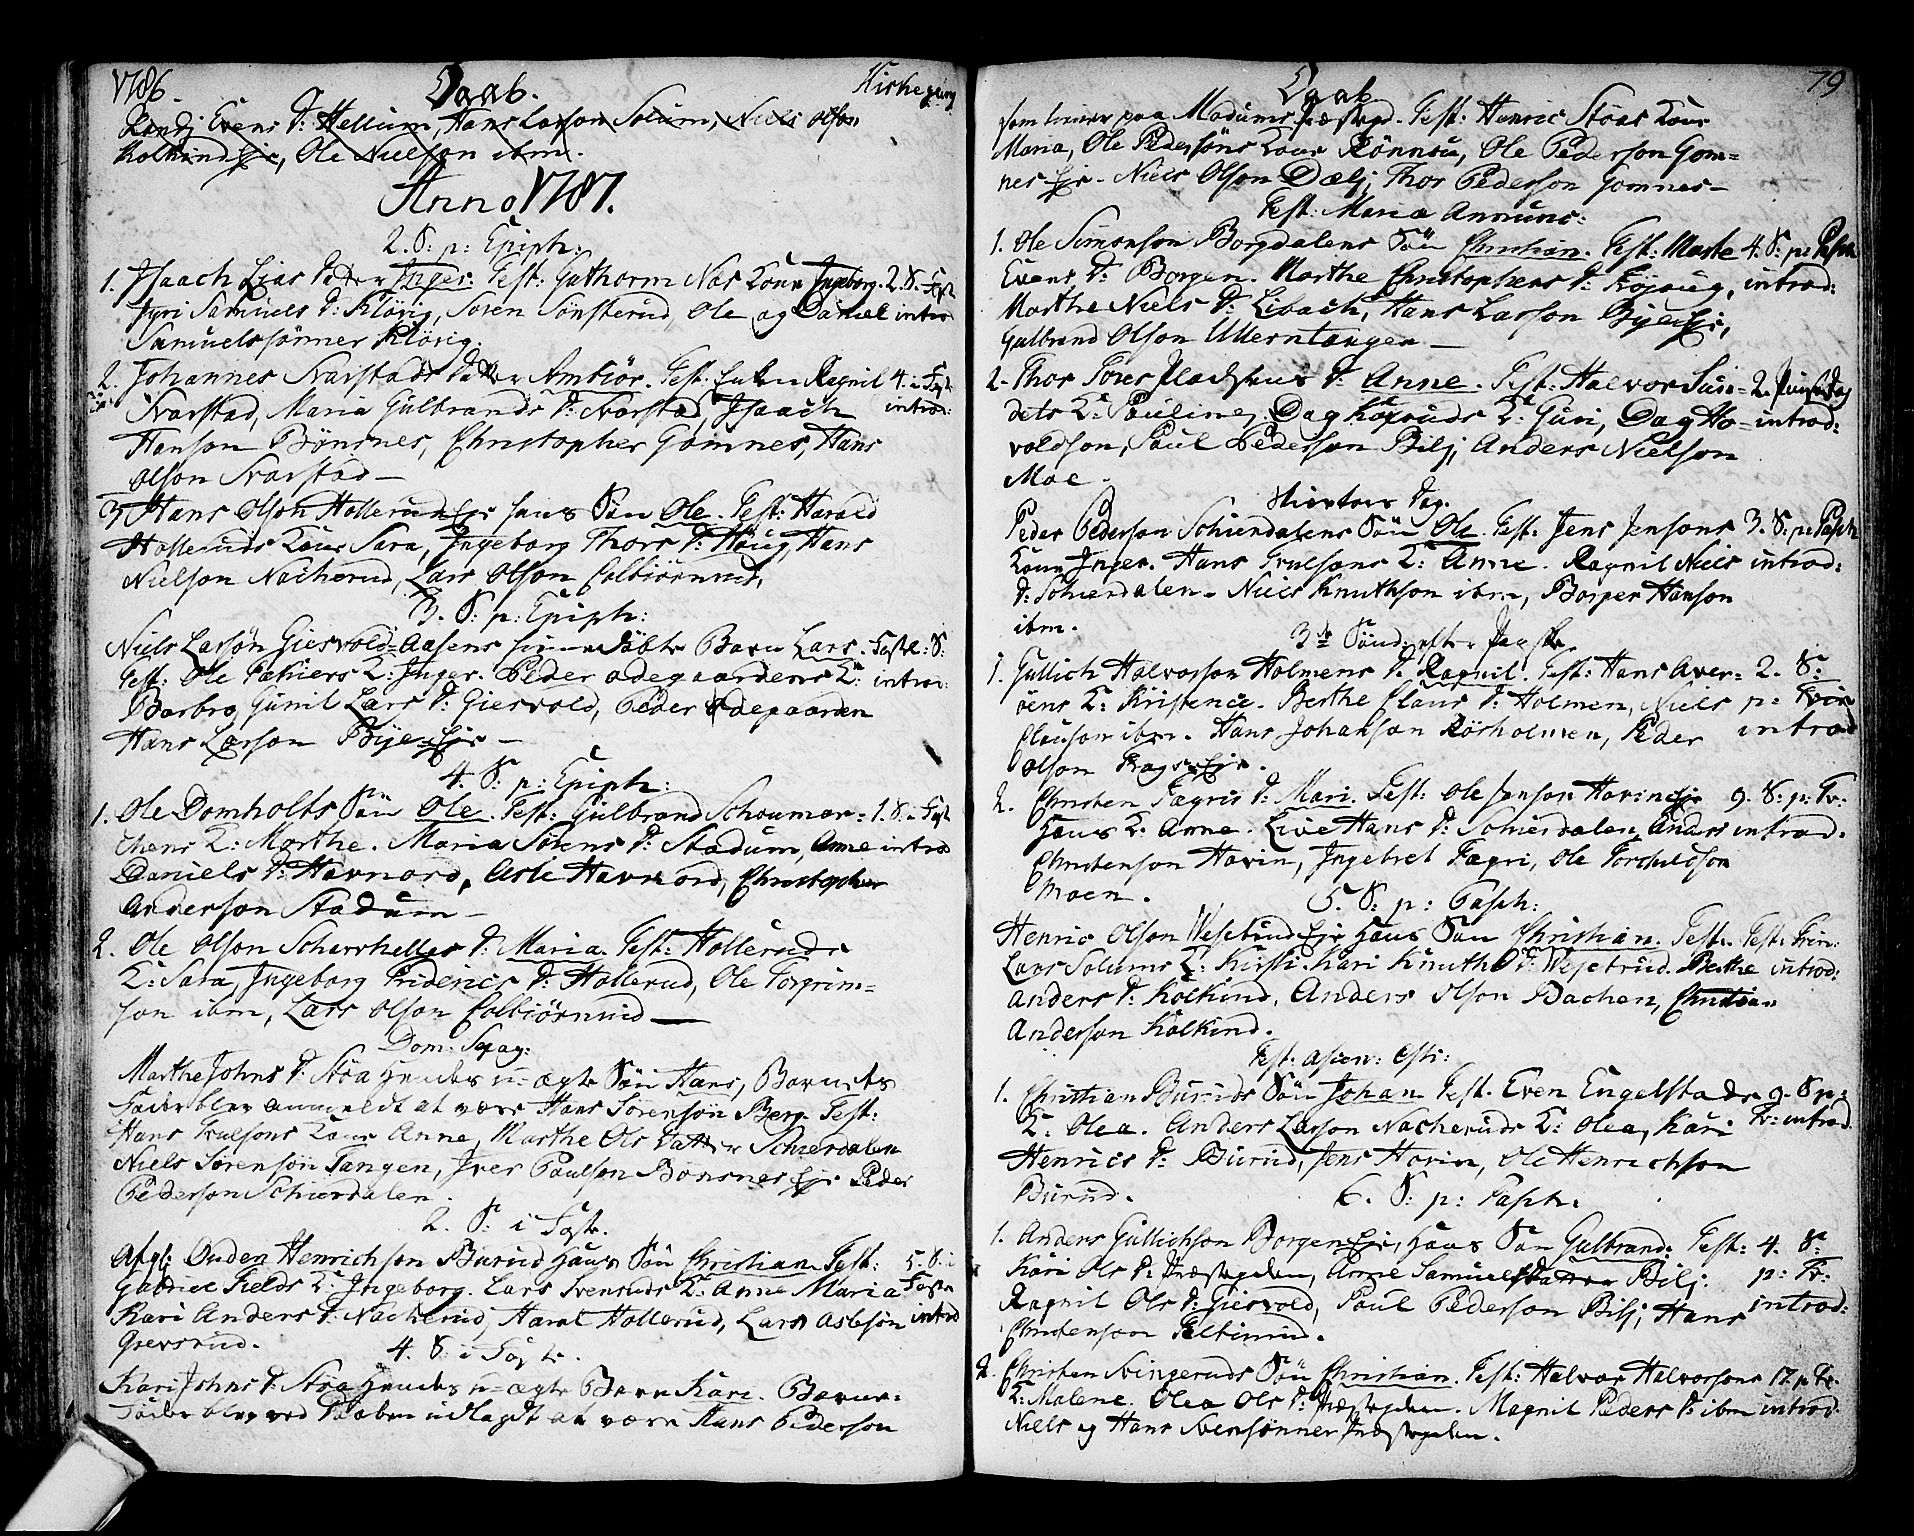 1786. Daab. Kirkegang
Randj Evens D: Hellum, Hans Larson Solum, Niels Olson
Kolkind Eje, Ole Nielson ibm.
Anno 1787.
2. S. p: Epiph:
1. Isaach Lias Datter Inger. Test: Guthorm Næs Kone Ingeborg. 2. S. Fast
Jyri Samuels D: Klörig, Sören Sönsterud, Ole og Daniel introd
Samuelssönner Klörig.
2. Johannes Svarstads Datter Ambiör. Test: Enken Ragnil 4. i Faste
Svarstad, Maria Gulbrands D: Svarstad, Isaach introd:
Hanson Bönsnes, Christopher Gomnes, Hans
Olson Svarstad
3 Hans Olson Hollerud Eje hans Sön Ole. Test: Harald
Holleruds Kone Sara, Ingeborg Thors D: Houg, Hans
Nielson Nacherud, Lars Olson Colbiörnrud.
3. S. p: Epiph:
Niels Larsön Giesvold-Aasens hiemedöbte Barn Lars. Faste: S:
Test: Ole Pahiers K: Inger. Peder Ödegaardens K: introd:
Barbro, Gunil Lars D: Giesvold, Peder Ödegaarden
Hans Larson Bye Eje
4. S: p: Epiph:
1. Ole Domholts Sön Ole. Test: Gulbrand Schoumar= 1. S. Fast
chens K: Marthe. Maria Sörens D: Stadum, Anne introd
Daniels D: Havnord, Asle Havnord, Christopher
Anderson Stadum
2. Ole Olson Scharrhelles D: Maria. Test: Holleruds
K: Sara, Ingeborg Friderics D: Hollerud, Ole Torgrim=
son ibm, Lars Olson Colbiörnrud
Dom: Septuag:
Marthe Johns D: Stöa hendes u-ægte Sön Hans, Barnets
Fader blev anmeldt at være Hans Sörensön Berg. Test:
Hans Trulsons Kone Anne, Marthe Ols Datter Schierdalen
Niels Sörensön Tangen, Iver Paulson Bönsnes Eje Peder
Pederson Schierdalen.
2. S: i Faste.
Afgl: Ouden Henrichson Burud hans Sön Christian. Test: 5. S. i
Gabriel Fields K: Ingeborg. Lars Svensruds K: Anne Maria Faste
Kari Anders D: Nacherud, Haral Hollerud, Lars Aslesön introd
Gversrud.
4. S: i Faste.
Kari Johns D: Stöa hendes u-ægte Barn Kari. Barne=
Fader blev ved Daaben udlagdt at være Hans Pederson
Daab 79
som tiener paa Modums Præstegd. Test: Henric Stöas Kone
Maria, Ole Pedersöns Kone Rönnou, Ole Pederson Gom=
nes Eje. Niels Olson Dælj, Thor Pederson Gomnes
Fest: Mariæ Annunc:
1. Ole Simonson Borgdalens Sön Christian. Test: Marte 4. S. p: Pasch
Evens D: Borgen. Marthe Christophers D: Röjoug, introd:
Marthe Niels D: Libach, Hans Larson Bye Eje,
Gulbrand Olson Ullerntangen
2. Thor Tores Pladsens D: Anne. Test: Halvor Sun= 2. Pintsedag
dets K: Pauline, Dag Kösruds K: Guri, Dag Ho= introd:
voldson, Paul Pederson Bilj, Anders Nielson
Moe.
Skiertors Dag.
Peder Pederson Schierdalens Sön Ole. Test: Jens Jensons 3. S. p: Pasch
Kone Inger. Hans Trulsons K: Anne. Ragnil Niels introd:
D: Schierdalen. Niels Knuthson ibm, Borger Hanson
ibm.
3de Sönd: efter Paaske
1. Gullich Halvorson Holmens D: Ragnil. Test: Hans Aver= 2. S:
öens K: Kirstence. Berthe Claus D: Holmen, Niels p: Trin
Clauson ibm. Hans Johanson Rörholmen, Peder introd
Olson Krags Eje.
2. Christen Fægris D: Mari. Test: Ole Jenson Hovin Eje 9. S. p: Tr:
hans K: Anne. Live Hans D: Schierdalen, Anders introd.
Christenson Hovin, Ingebret Fægri, Ole Torchildson
Moen.
5. S: p: Pasch:
Henric Olson Wesetrud Eje hans Sön Christian. Test: Fest: Trin:
Lars Solums K: Kirsti. Kari Knuths D: Wesetrud. Berthe introd:
Anders D: Kolkind, Anders Olson Bachen, Christian
Anderson Kolkind.
Fest: Ascen: Chri:
1. Christian Buruds Sön Johan. Test. Even Engelstads 9. S p:
K: Olea. Anders Larson Nacheruds K: Olea, Kari Tr: introd.
Henrics D: Burud, Jens Hovin, Ole Henrichson
Burud.
6. S: p: Pasch.
1. Anders Gullichson Borgen Eje, hans Sön Gulbrand. Test: 4. S:
Kari Ols D: Præstegden, Anne Samuels Datter Bilj. p: Tr:
Ragnil Ols D: Giesvold, Paul Pederson Bilj, Hans introd:
Christenson Feltimrud.
2. Christen Svingeruds Sön Christian. Test: Halvor Halvorsons 17. p Tr.
K: Malene. Olea Ols D: Præstegden. Magnil Peders D: ibm introd
Niels og Hans Svensönner Præstegden.